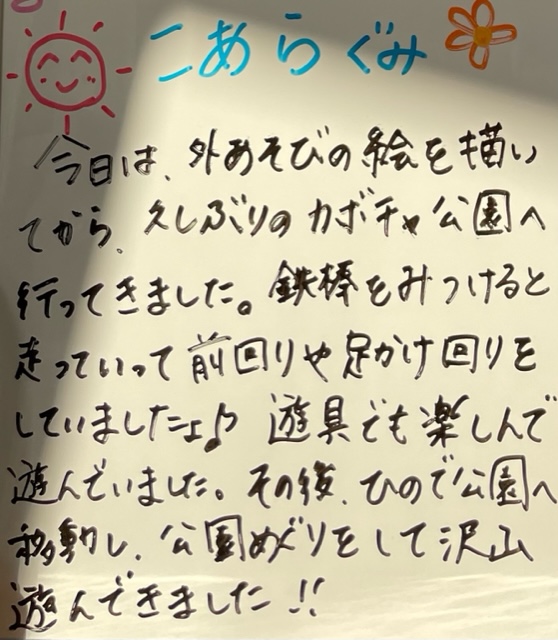 こあらぐみ
今日は、外あそびの絵を描い
てから、久しぶりのカボチャ公園へ
行ってきました。鉄棒をみつけると
走っていって前回りや足かけ回りを
していましたよ♪ 遊具でも楽しんで
遊んでいました。その後、ひので公園へ
移動し、公園めぐりをして沢山
遊んできました!!